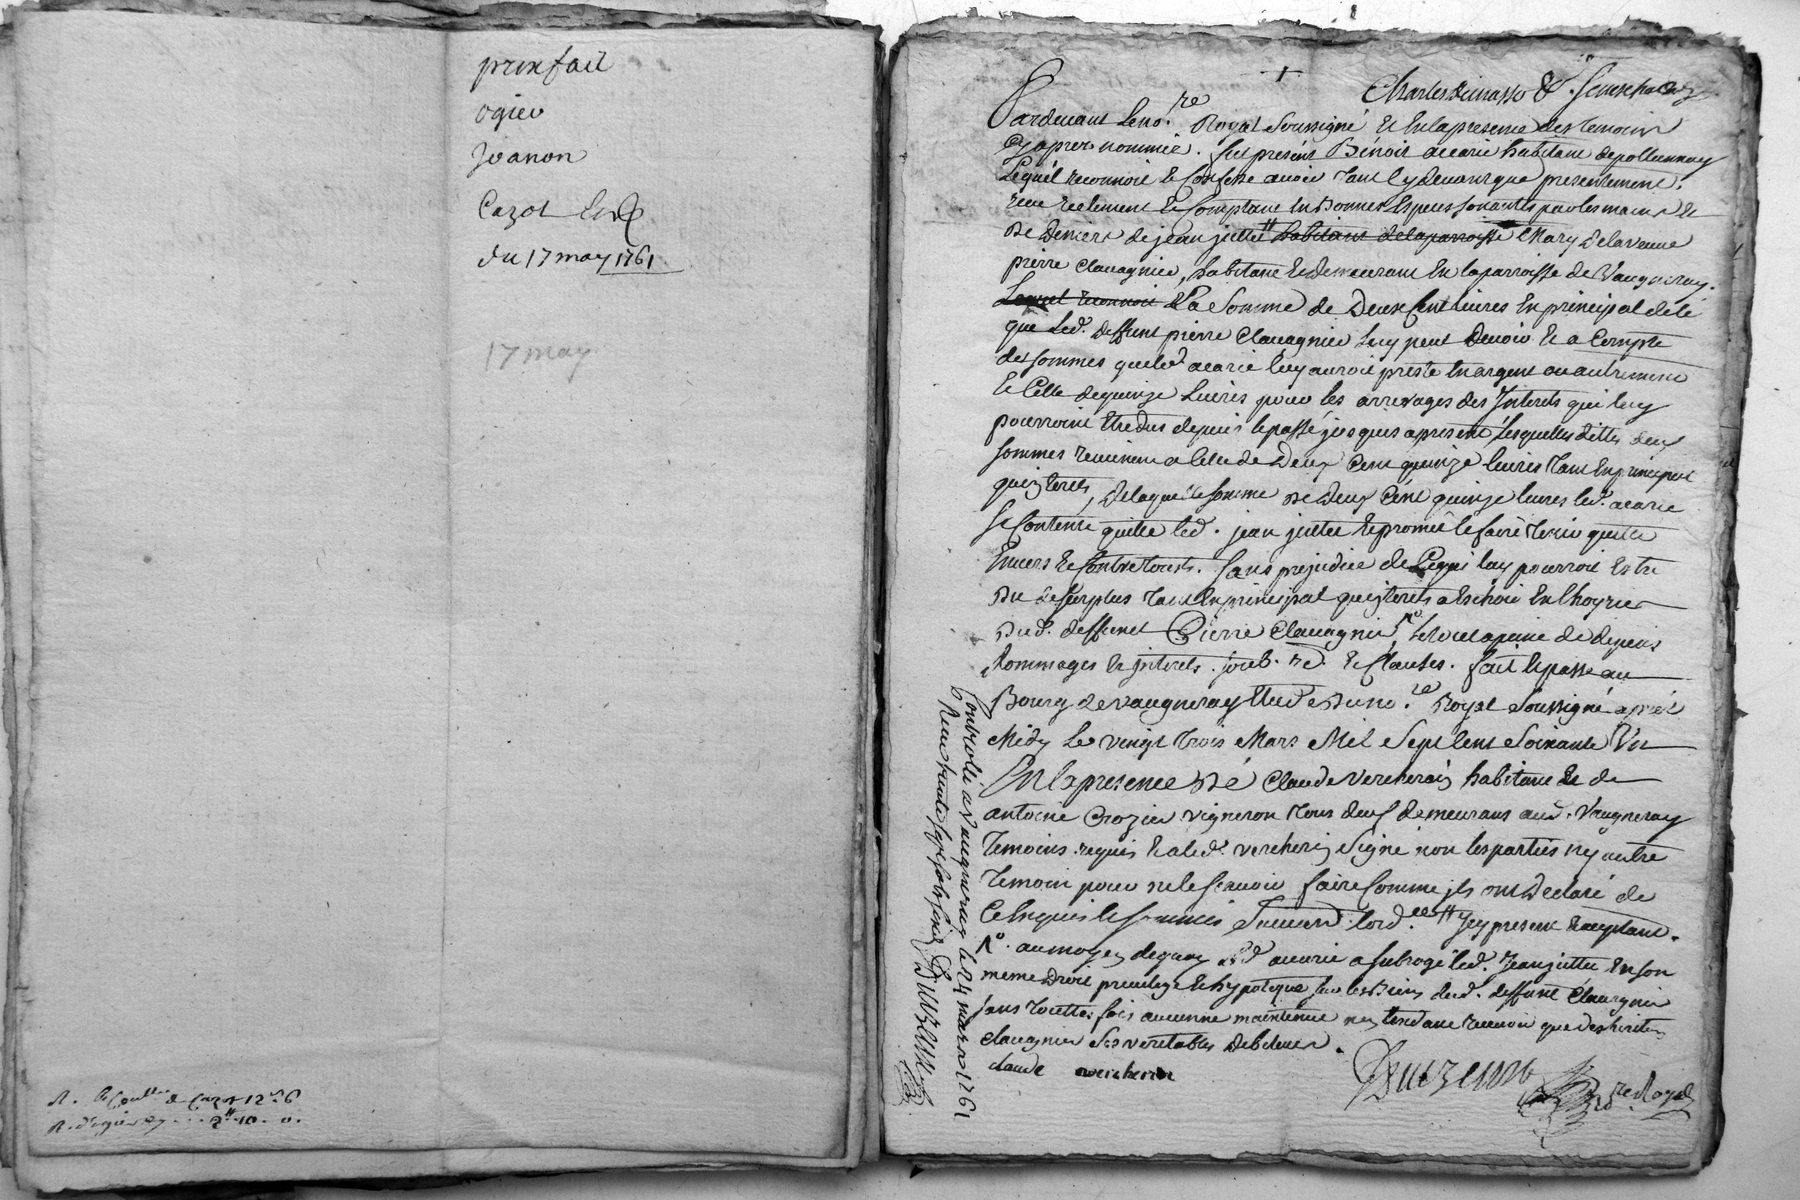 prixfait
ogier
Jvanon
Cazot
du 17 may 1761
17 may
Pardevant le no.re Royal Soussigné et En la presence des temoins
Cy apres nommés. fut presént Bénoit acarie habitant de pollionnay
Lequél reconnoit et Confesse avoir tant Cy devant que presentement
reçu reelement et Comptant En Bonnes Especes sonantes par les mains et
De Deniers de jean juttet habitant de la parroisse Mary De la veuve
pierre Clavagnier, habitant et Demeurant En la parroisse de Vaugneray.
Lequel reconnoit La Somme de Deux Cent Livres En principal
que led. Deffunt pierre Clavagnier Luy peut Devoir et a Compte
des sommes que led. acarie luy auroit presté En argent ou autrement
et Celle de quinze Livres pour les arrerages des Interets qui luy
pourroint Etre dus depuis le passé jusques a present Lesquelles dittes deux
sommes reviennent a Celle de Deux Cent quinze livres tant En principal
qu'interets, De laquelle somme De Deux Cent quinze livres led. acarie
se Contente quitte led. jean juttet et promet le faire tenir quitte
Envers et Contre touts. sans prejudice de Ce qui luy pourroit Estre
Du de surplus tant En principal qu'interets a Echoir En l'hoyrie
Dud. deffunct Pierre Clavagnier, le tout a peine de depens
Dommages et interets. et Clauses. fait et passé au
Bourg de vaugneray Etude Du no.re Royal Soussigné aprés
Midy Le vingt trois Mars Mil Sept Cent Soixante Un
En la presence Dé Claude Vercherin habitant et de
antoine Crozier vigneron tous deux demeurans aud. Vaugneray
Temoins requis et a led. vercherin Signé non les parties ny autre
Temoin pour ne le Scavoir faire Comme ils ont Declaré de
Ce Enquis et sommés
au moyen de quoy led. acarie a subrogé led. Jean juttet En son
meme Droit privilege et hypoteque sur les Biens dud. deffunt Clavagnier
sans touttes fois aucunne maintenue
Clavagnier Ses veritables Debiteurs.
claude vercherin
re Royal
Controllé a vaugneray le 24 mars 1761